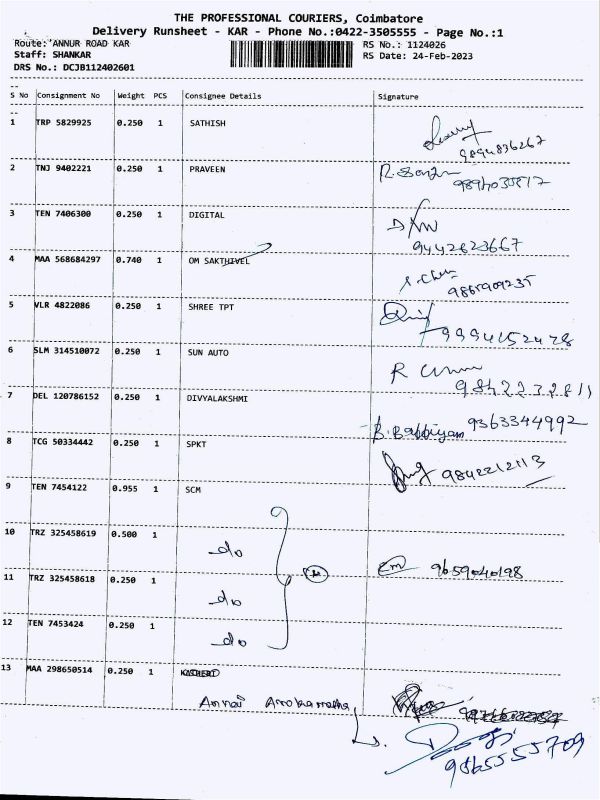 THE PROFESSIONAL COURIERS, Coimbatore
Delivery Runsheet - KAR - Phone No.:0422-3505555 - Page No.:1
Route: ANNUR ROAD KAR RS No.: 1124026
Staff: SHANKAR RS Date: 24-Feb-2023
DRS No.: DCJB112402601
S No Consignment No Weight PCS Consignee Details Signature
1 TRP 5829925 0.250 1 SATHISH
9894836267
2 TNJ 9402221 0.250 1 PRAVEEN
3 TEN 7406300 0.250 1 DIGITAL
9442623667
4 MAA 568684297 0.740 1 OM SAKTHIVEL
9865909235
5 VLR 4822086 0.250 1 SHREE TPT
9994152428
6 SLM 314510072 0.250 1 SUN AUTO
9842232811
7 DEL 120786152 0.250 1 DIVYALAKSHMI
9363344992
8 TCG 50334442 0.250 1 SPKT
9842212113
9 TEN 7454122 0.955 1 SCM
10 TRZ 325458619 0.500 1
do
9659040198
11 TRZ 325458618 0.250 1
do
12 TEN 7453424 0.250 1
do
13 MAA 298650514 0.250 1
Annai
9865555709